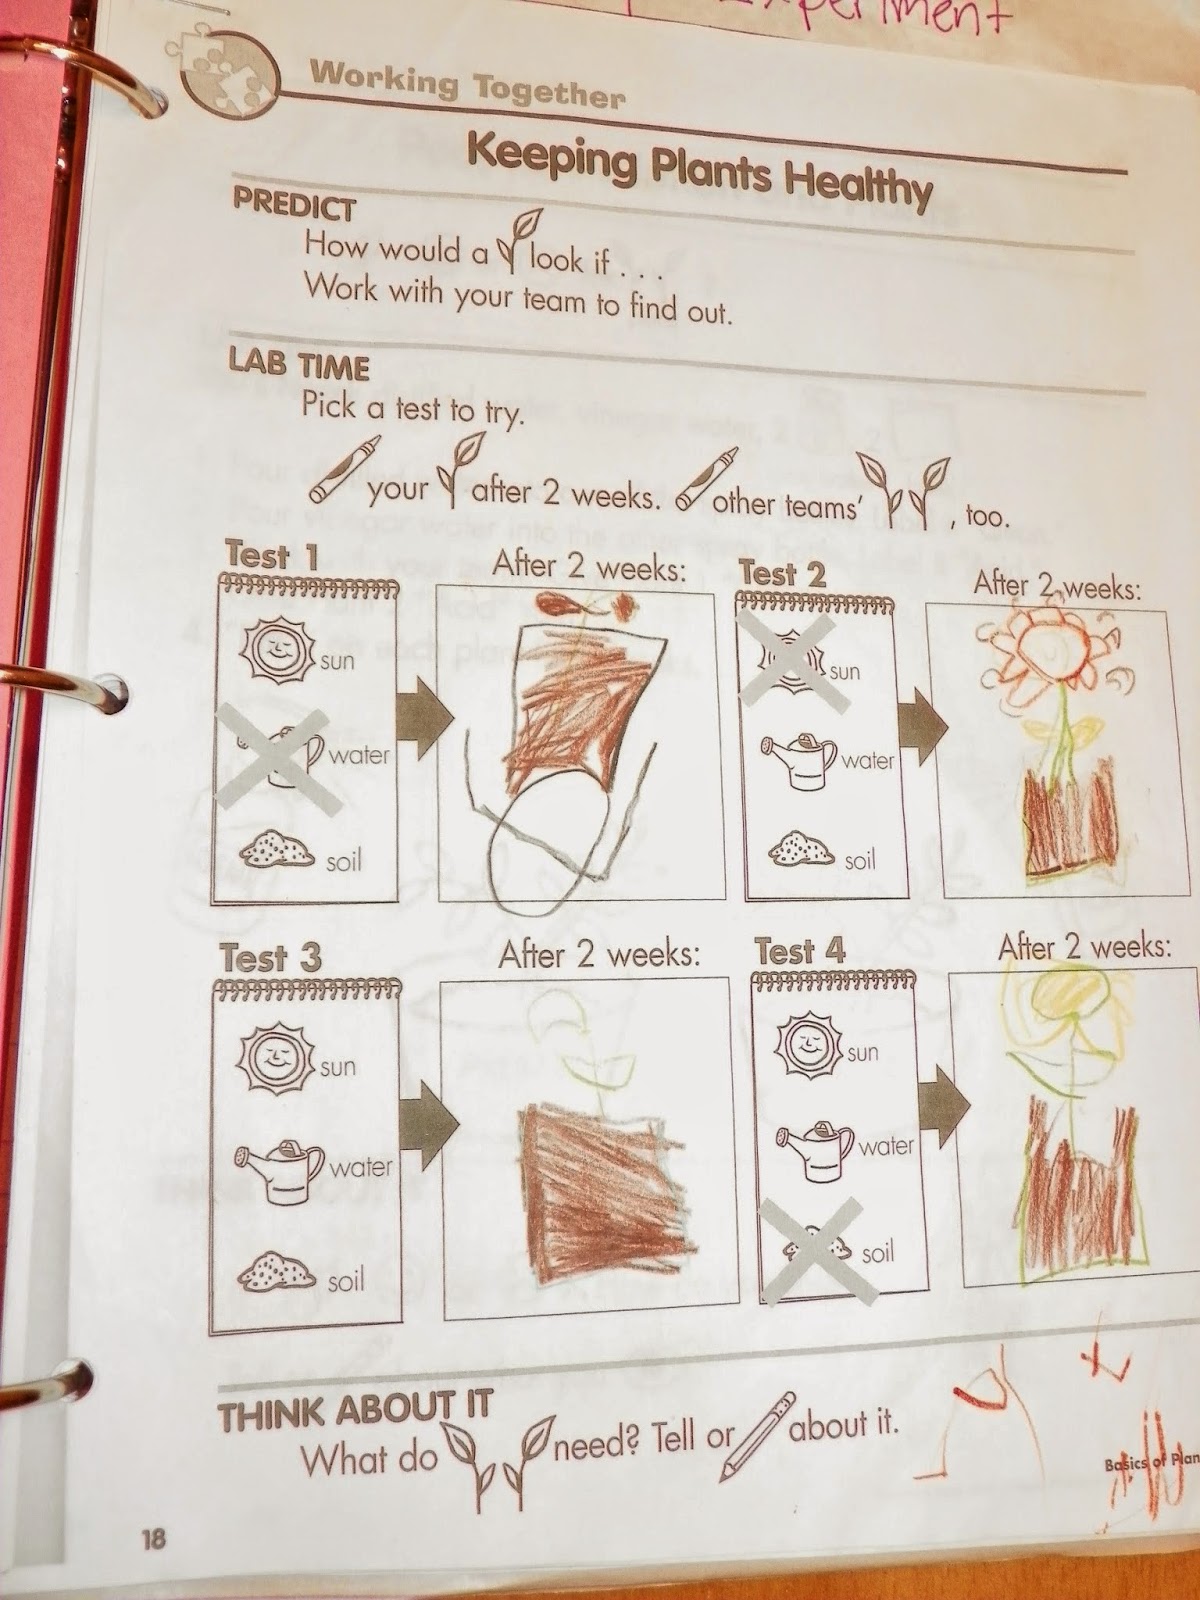 Experiment
Working Together
Keeping Plants Healthy
PREDICT
How would a look if . . .
Work with your team to find out.
LAB TIME
Pick a test to try.
your after 2 weeks. other teams' , too.
Test 1
After 2 weeks:
sun
water
soil
Test 2
After 2 weeks:
sun
water
soil
Test 3
After 2 weeks:
sun
water
soil
Test 4
After 2 weeks:
sun
water
soil
THINK ABOUT IT
What do need? Tell or about it.
Basics of Plan
18